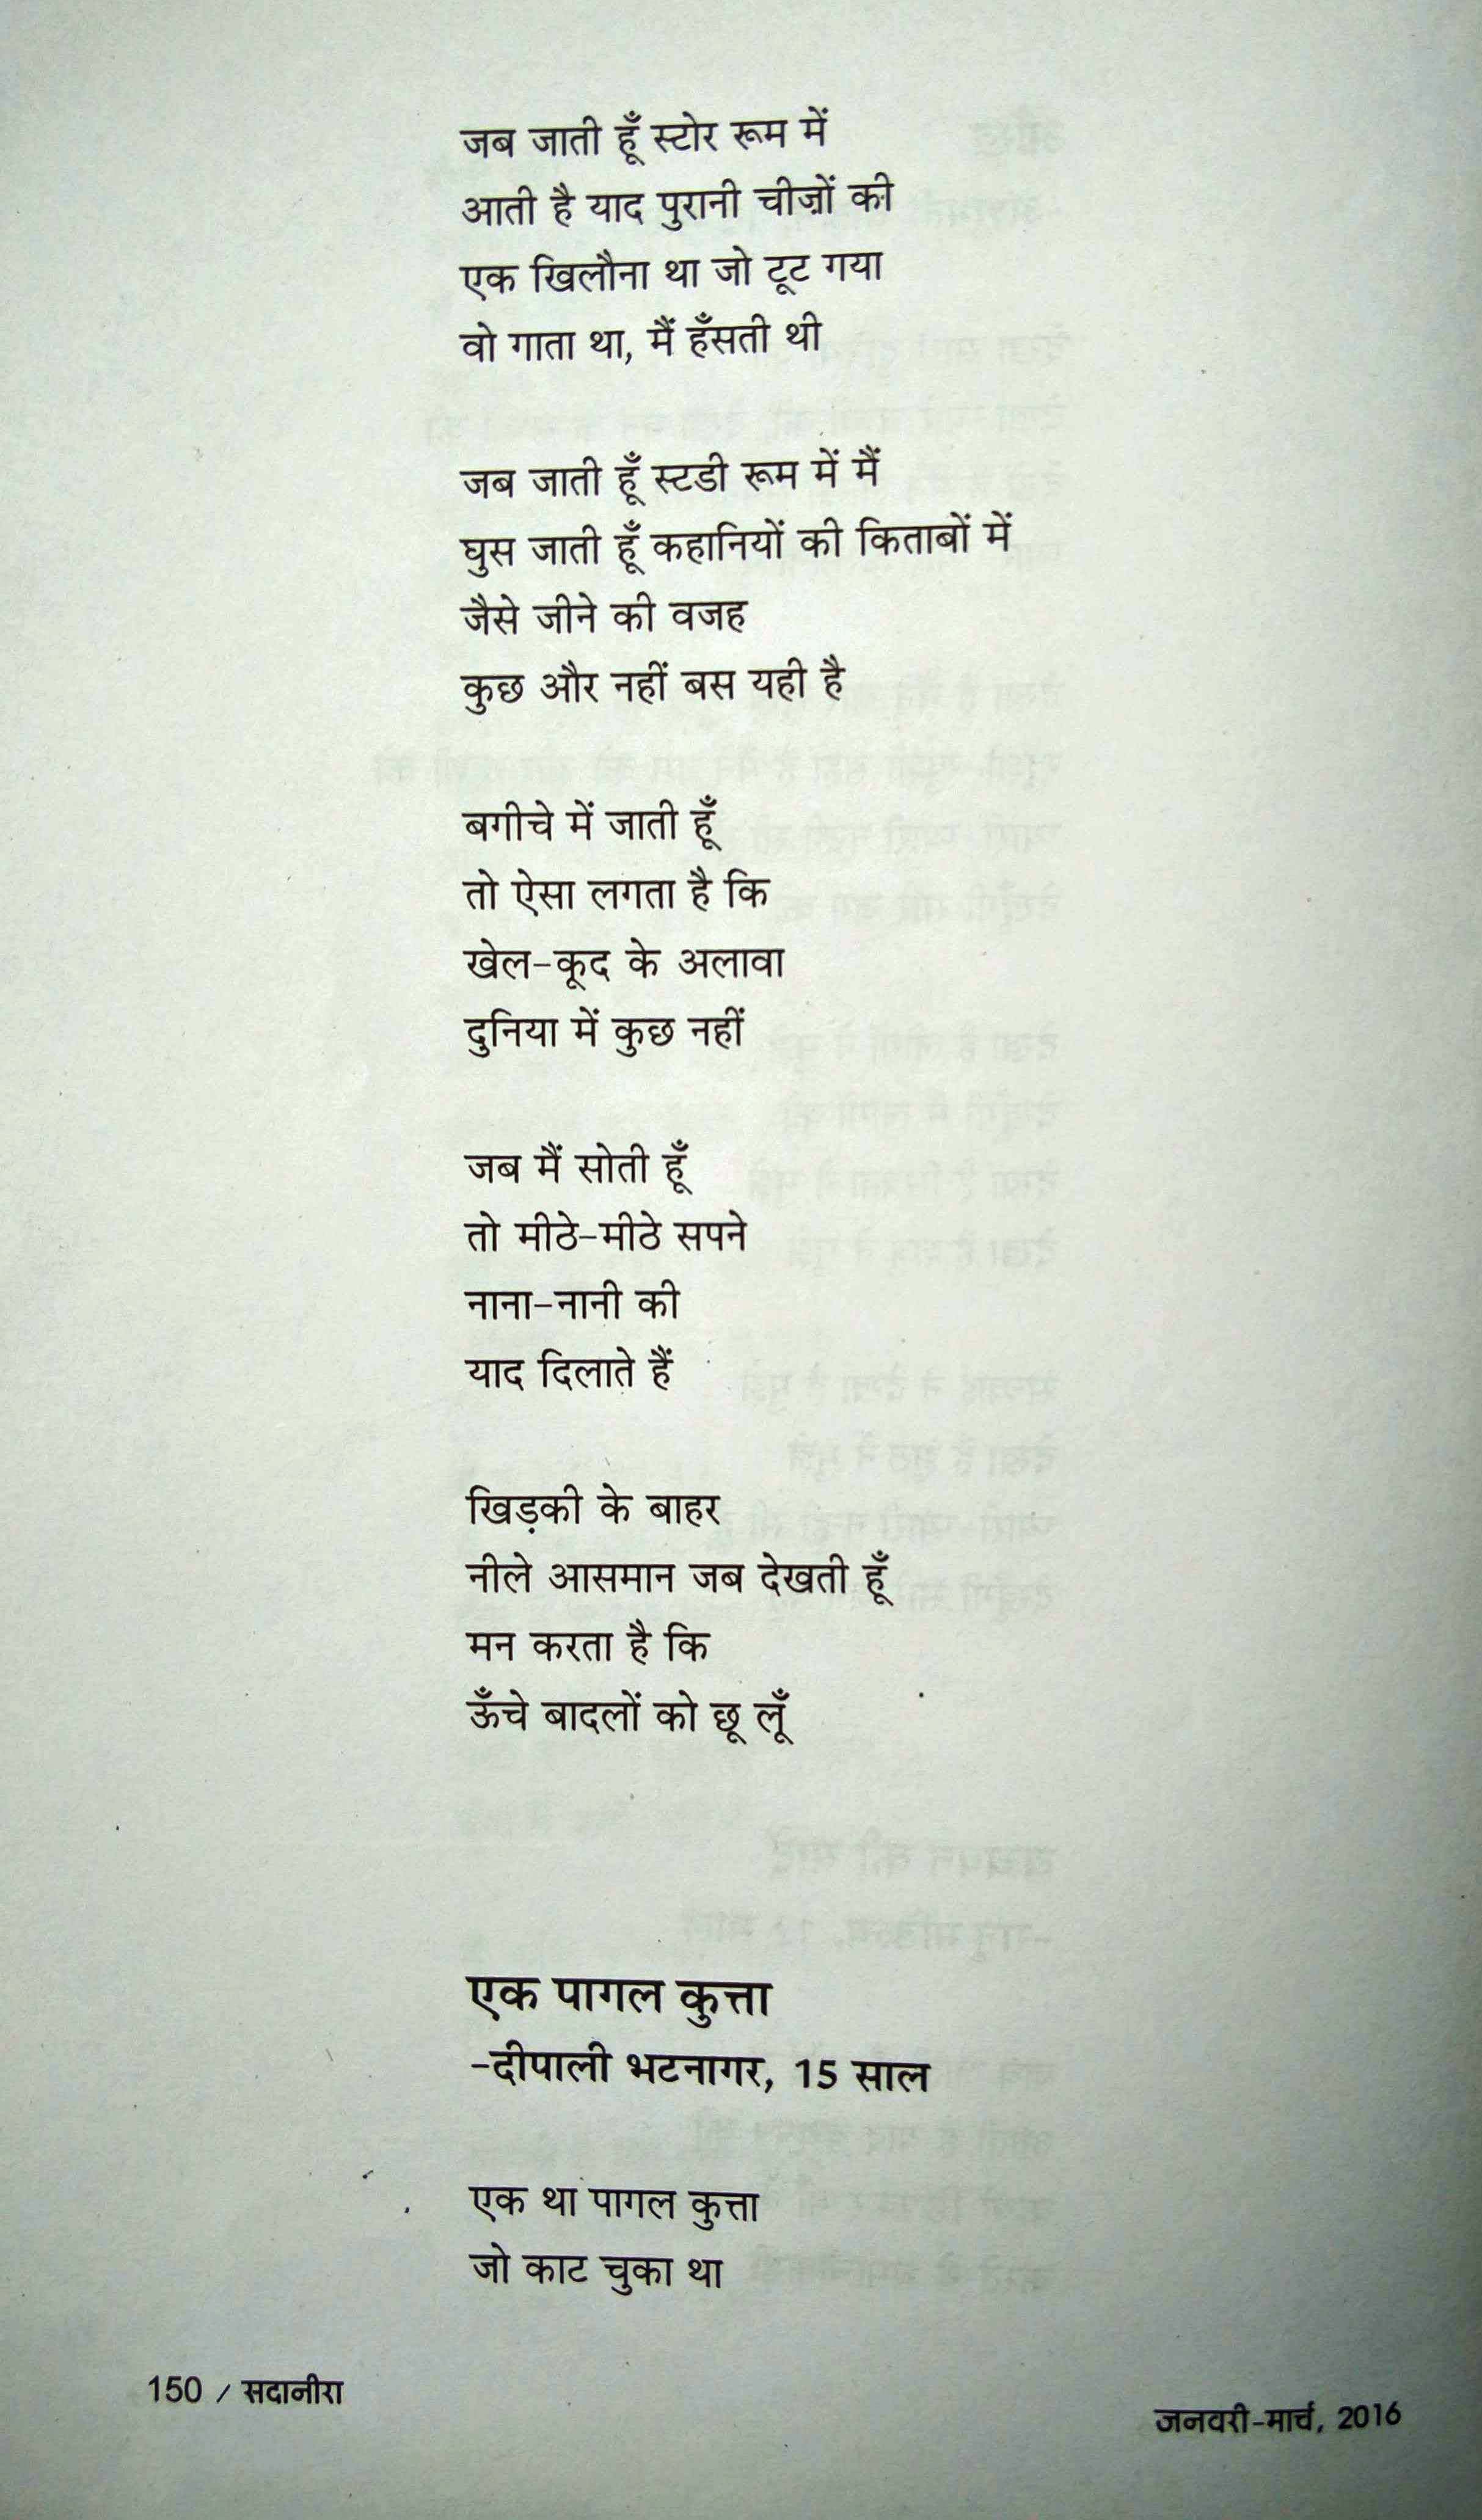 जब जाती हूँ स्टोर रूम में
आती है याद पुरानी चीज़ों की
एक खिलौना था जो टूट गया
वो गाता था, मैं हँसती थी
जब जाती हूँ स्टडी रूम में मैं
घुस जाती हूँ कहानियों की किताबों में
जैसे जीने की वजह
कुछ और नहीं बस यही है
बगीचे में जाती हूँ
तो ऐसा लगता है कि
खेल-कूद के अलावा
दुनिया में कुछ नहीं
जब मैं सोती हूँ
तो मीठे-मीठे सपने
नाना-नानी की
याद दिलाते हैं
खिड़की के बाहर
नीले आसमान जब देखती हूँ
मन करता है कि
ऊँचे बादलों को छू लूँ
एक पागल कुत्ता
-दीपाली भटनागर, 15 साल
एक था पागल कुत्ता
जो काट चुका था
150 / सदानीरा
जनवरी-मार्च, 2016